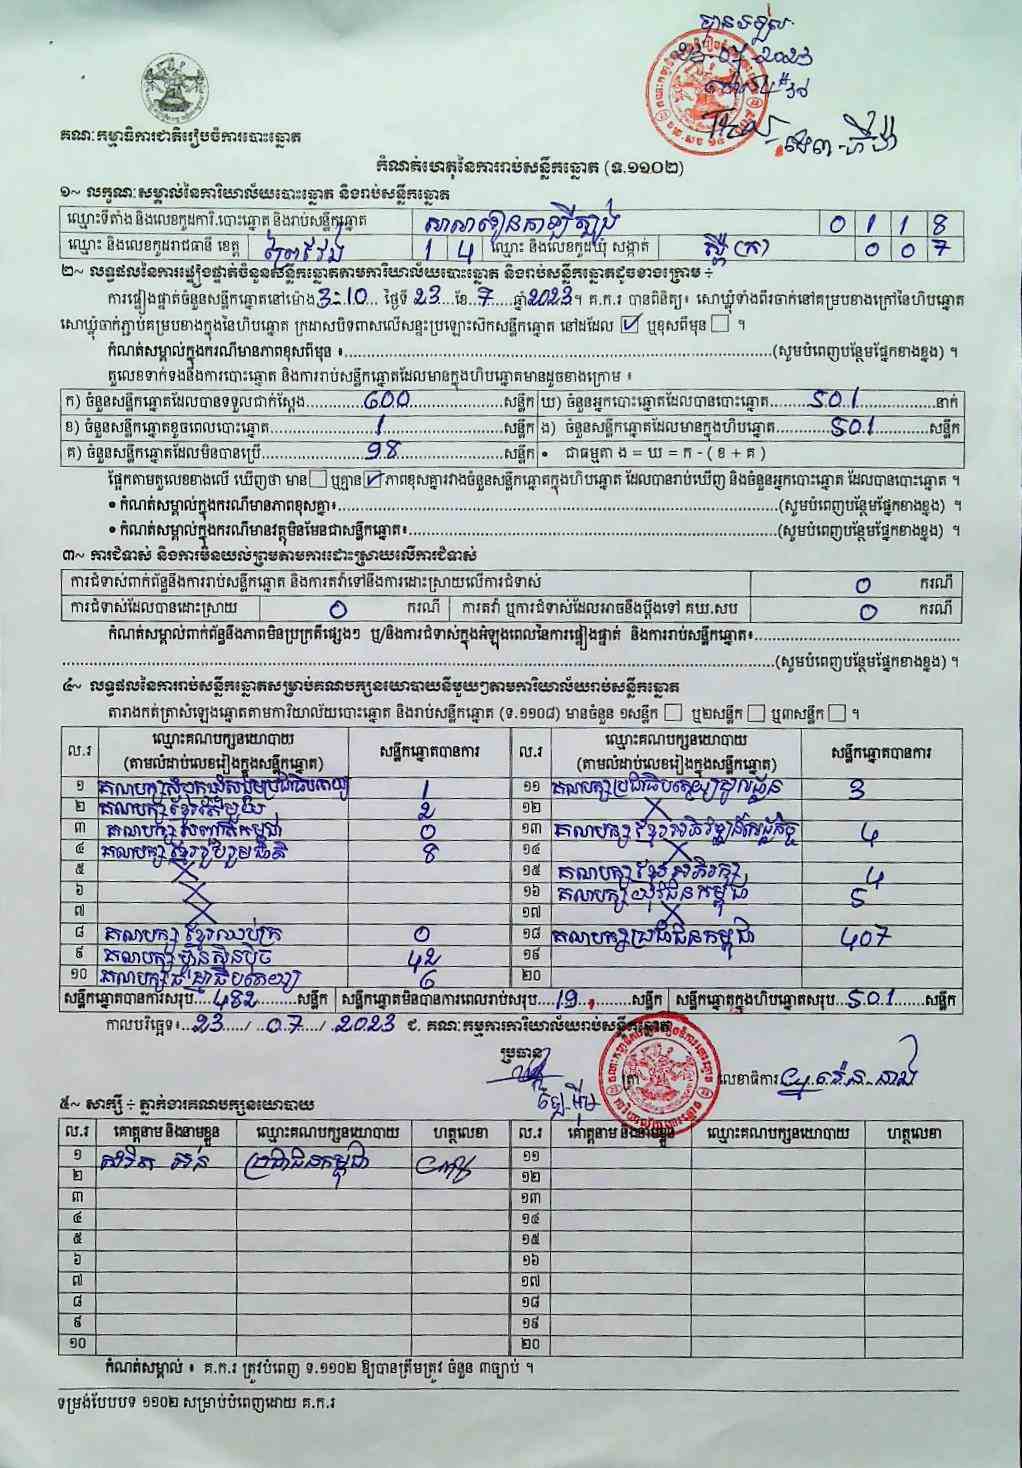 បានទទួល
23-07-2023
គណៈកម្មាធិការជាតិរៀបចំការបោះឆ្នោត
កំណត់ហេតុនៃការរាប់សន្លឹកឆ្នោត (ទ.១១០២)
១~ លក្ខណៈសម្គាល់នៃការិយាល័យបោះឆ្នោត និងរាប់សន្លឹកឆ្នោត
ឈ្មោះទីតាំង និងលេខកូដការិ.បោះឆ្នោត និងរាប់សន្លឹកឆ្នោត 0 1 1 8
ឈ្មោះ និងលេខកូដរាជធានី ខេត្ត ព្រៃវែង 1 4 ឈ្មោះ និងលេខកូដឃុំ សង្កាត់ ស្ពឺ(ក) 0 0 7
២~ លទ្ធផលនៃការផ្ទៀងផ្ទាត់ចំនួនសន្លឹកឆ្នោតតាមការិយាល័យបោះឆ្នោត និងរាប់សន្លឹកឆ្នោតដូចខាងក្រោម ÷
ការផ្ទៀងផ្ទាត់ចំនួនសន្លឹកឆ្នោតនៅម៉ោង 3:10 ថ្ងៃទី 23 ខែ 7 ឆ្នាំ 2023។ គ.ក.រ បានពិនិត្យ៖ សោឃ្លុំទាំងពីរចាក់នៅគម្របខាងក្រៅនៃហិបឆ្នោត
សោឃ្លុំចាក់ភ្ជាប់គម្របខាងក្នុងនៃហិបឆ្នោត ក្រដាសបិទពាសលើសន្ទះប្រឡោះសិកសន្លឹកឆ្នោត នៅដដែល ☑ ឬខុសពីមុន ☐ ។
កំណត់សម្គាល់ក្នុងករណីមានភាពខុសពីមុន ៖ (សូមបំពេញបន្ថែមផ្នែកខាងខ្នង) ។
តួលេខទាក់ទងនឹងការបោះឆ្នោត និងការរាប់សន្លឹកឆ្នោតដែលមានក្នុងហិបឆ្នោតមានដូចខាងក្រោម ៖
ក) ចំនួនសន្លឹកឆ្នោតដែលបានទទួលជាក់ស្តែង 600 សន្លឹក ឃ) ចំនួនអ្នកបោះឆ្នោតដែលបានបោះឆ្នោត 501 នាក់
ខ) ចំនួនសន្លឹកឆ្នោតខូចពេលបោះឆ្នោត 1 សន្លឹក ង) ចំនួនសន្លឹកឆ្នោតដែលមានក្នុងហិបឆ្នោត 501 សន្លឹក
គ) ចំនួនសន្លឹកឆ្នោតដែលមិនបានប្រើ 98 សន្លឹក • ជាធម្មតា ង = ឃ = ក - ( ខ + គ )
ផ្អែកតាមតួលេខខាងលើ ឃើញថា មាន ☐ ឬគ្មាន ☑ ភាពខុសគ្នារវាងចំនួនសន្លឹកឆ្នោតក្នុងហិបឆ្នោត ដែលបានរាប់ឃើញ និងចំនួនអ្នកបោះឆ្នោត ដែលបានបោះឆ្នោត ។
• កំណត់សម្គាល់ក្នុងករណីមានភាពខុសគ្នា៖ (សូមបំពេញបន្ថែមផ្នែកខាងខ្នង) ។
• កំណត់សម្គាល់ក្នុងករណីមានវត្ថុមិនមែនជាសន្លឹកឆ្នោត៖ (សូមបំពេញបន្ថែមផ្នែកខាងខ្នង) ។
៣~ ការជំទាស់ និងការមិនយល់ព្រមតាមការដោះស្រាយលើការជំទាស់
ការជំទាស់ពាក់ព័ន្ធនឹងការរាប់សន្លឹកឆ្នោត និងការតវ៉ាទៅនឹងការដោះស្រាយលើការជំទាស់ 0 ករណី
ការជំទាស់ដែលបានដោះស្រាយ 0 ករណី ការតវ៉ា ឬការជំទាស់ដែលអាចនឹងប្តឹងទៅ គឃ.សប 0 ករណី
កំណត់សម្គាល់ពាក់ព័ន្ធនឹងភាពមិនប្រក្រតីផ្សេងៗ ឬ/និងការជំទាស់ក្នុងអំឡុងពេលនៃការផ្ទៀងផ្ទាត់ និងការរាប់សន្លឹកឆ្នោត៖
(សូមបំពេញបន្ថែមផ្នែកខាងខ្នង) ។
៤~ លទ្ធផលនៃការរាប់សន្លឹកឆ្នោតសម្រាប់គណបក្សនយោបាយនីមួយៗតាមការិយាល័យរាប់សន្លឹកឆ្នោត
តារាងកត់ត្រាសំឡេងឆ្នោតតាមការិយាល័យបោះឆ្នោត និងរាប់សន្លឹកឆ្នោត (ទ.១១០៨) មានចំនួន ១សន្លឹក ☐ ឬ២សន្លឹក ☐ ឬ៣សន្លឹក ☐ ។
ល.រ ឈ្មោះគណបក្សនយោបាយ (តាមលំដាប់លេខរៀងក្នុងសន្លឹកឆ្នោត) សន្លឹកឆ្នោតបានការ ល.រ ឈ្មោះគណបក្សនយោបាយ (តាមលំដាប់លេខរៀងក្នុងសន្លឹកឆ្នោត) សន្លឹកឆ្នោតបានការ
១ គណបក្សសំបុកឃ្មុំសង្គមប្រជាធិបតេយ្យ 1 ១១ គណបក្សប្រជាធិបតេយ្យមូលដ្ឋាន 3
២ គណបក្សខ្មែរតែមួយ 2 ១២ X
៣ គណបក្ស កម្ពុជា 0 ១៣ គណបក្សខ្មែរអភិវឌ្ឍន៍សេដ្ឋកិច្ច 4
៤ គណបក្សខ្មែររួបរួមជាតិ 8 ១៤ X
៥ X ១៥ គណបក្សខ្មែរអភិរក្ស 4
៦ X ១៦ គណបក្សយុវជនកម្ពុជា 5
៧ X ១៧ X
៨ គណបក្សខ្មែរឈប់ក្រ 0 ១៨ គណបក្សប្រជាជនកម្ពុជា 407
៩ គណបក្សហ៊្វុនស៊ិនប៉ិច 42 ១៩
១០ គណបក្សធម្មាធិបតេយ្យ 6 ២០
សន្លឹកឆ្នោតបានការសរុប 482 សន្លឹក សន្លឹកឆ្នោតមិនបានការពេលរាប់សរុប 19 សន្លឹក សន្លឹកឆ្នោតក្នុងហិបឆ្នោតសរុប 501 សន្លឹក
កាលបរិច្ឆេទ៖ 23 / 07 / 2023 ជ. គណៈកម្មការការិយាល័យរាប់សន្លឹកឆ្នោត
ប្រធាន ត្រា លេខាធិការ
៥~ សាក្សី ÷ ភ្នាក់ងារគណបក្សនយោបាយ
ល.រ គោត្តនាម និងនាមខ្លួន ឈ្មោះគណបក្សនយោបាយ ហត្ថលេខា ល.រ គោត្តនាម និងនាមខ្លួន ឈ្មោះគណបក្សនយោបាយ ហត្ថលេខា
១ ប្រជាជនកម្ពុជា ១១
២ ១២
៣ ១៣
៤ ១៤
៥ ១៥
៦ ១៦
៧ ១៧
៨ ១៨
៩ ១៩
១០ ២០
កំណត់សម្គាល់ ៖ គ.ក.រ ត្រូវបំពេញ ទ.១១០២ ឱ្យបានត្រឹមត្រូវ ចំនួន ៣ច្បាប់ ។
ទម្រង់បែបបទ ១១០២ សម្រាប់បំពេញដោយ គ.ក.រ